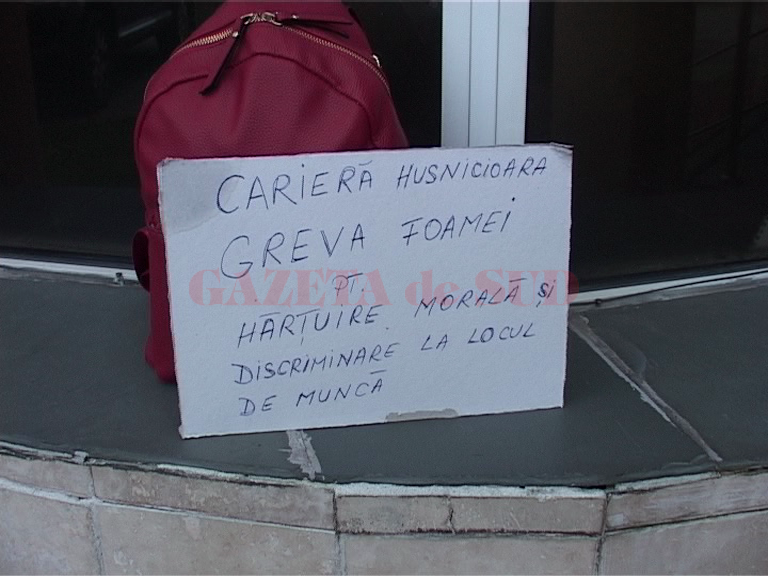 CARIERĂ HUSNICIOARA
GREVA FOAMEI
PT.
GAZETA de SUD
HĂRȚUIRE MORALĂ ȘI
DISCRIMINARE LA LOCUL
DE MUNCĂ